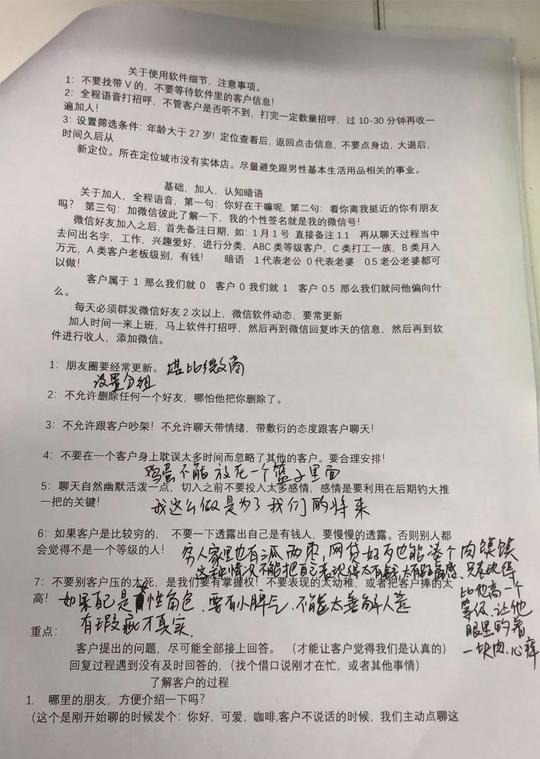 关于使用软件细节，注意事项。
1：不要找带 V 的，不要等待软件里的客户信息！
2：全程语音打招呼，不管客户是否听不到，打完一定数量招呼，过 10-30 分钟再收一
遍加人！
3：设置筛选条件：年龄大于 27 岁！定位查看后，返回点击信息，不要点身边，大退后，
时间久后从
新定位。所在定位城市没有实体店。尽量避免跟男性基本生活用品相关的事业。
基础，加人，认知暗语
关于加人，全程语音，第一句：你好在干嘛呢，第二句：看你离我挺近的你有朋友
吗？ 第三句：加微信彼此了解一下，我的个性签名就是我的微信号！
微信好友加入之后，首先备注日期，如：1 月 1 号 直接备注 1.1 再从聊天过程当中
去问出名字，工作，兴趣爱好，进行分类，ABC 类等级客户，C 类打工一族，B 类月入
万元，A 类客户老板级别，有钱！ 暗语 1 代表老公 0 代表老婆 0.5 老公老婆都可
以做！
客户属于 1 那么我们就 0 客户 0 我们就 1 客户 0.5 那么我们就问他偏向什
么。
每天必须群发微信好友 2 次以上，微信软件动态，要常更新
加人时间一来上班，马上软件打招呼，然后再到微信回复昨天的信息，然后再到软
件进行收人，添加微信。
1：朋友圈要经常更新。 堪比微商
设置分组
2：不允许删除任何一个好友，哪怕他把你删除了。
3：不允许跟客户吵架！不允许聊天带情绪，带敷衍的态度跟客户聊天！
4：不要在一个客户身上耽误太多时间而忽略了其他的客户。要合理安排！
鸡蛋不能放在一个篮子里面
5：聊天自然幽默活泼一点，切入之前不要投入太多感情，感情是要利用在后期钓大推
一把的关键！ 我这么做是为了我们的将来
6：如果客户是比较穷的， 不要一下透露出自己是有钱人，要慢慢的透露。否则别人都
会觉得不是一个等级的人！ 穷人家里也有三瓜两枣，网贷 也能凑个肉馍馍
这种情况不能把自己表现得太 只表现得
比他高一个
等级，让他
眼里的看
一块肉，心痒
7：不要别客户压的太死，是我们要有掌握权！不要表现的太幼稚，或者把客户捧的太
高！ 如果自己是 性角色，要有小脾气，不能太善解人意
有瑕疵才真实
重点：
客户提出的问题，尽可能全部接上回答。（才能让客户觉得我们是认真的）
回复过程遇到没有及时回答的，（找个借口说刚才在忙，或者其他事情）
了解客户的过程
1. 哪里的朋友，方便介绍一下吗？
（这个是刚开始聊的时候发个：你好，可爱，咖啡,客户不说话的时候，我们主动聊这